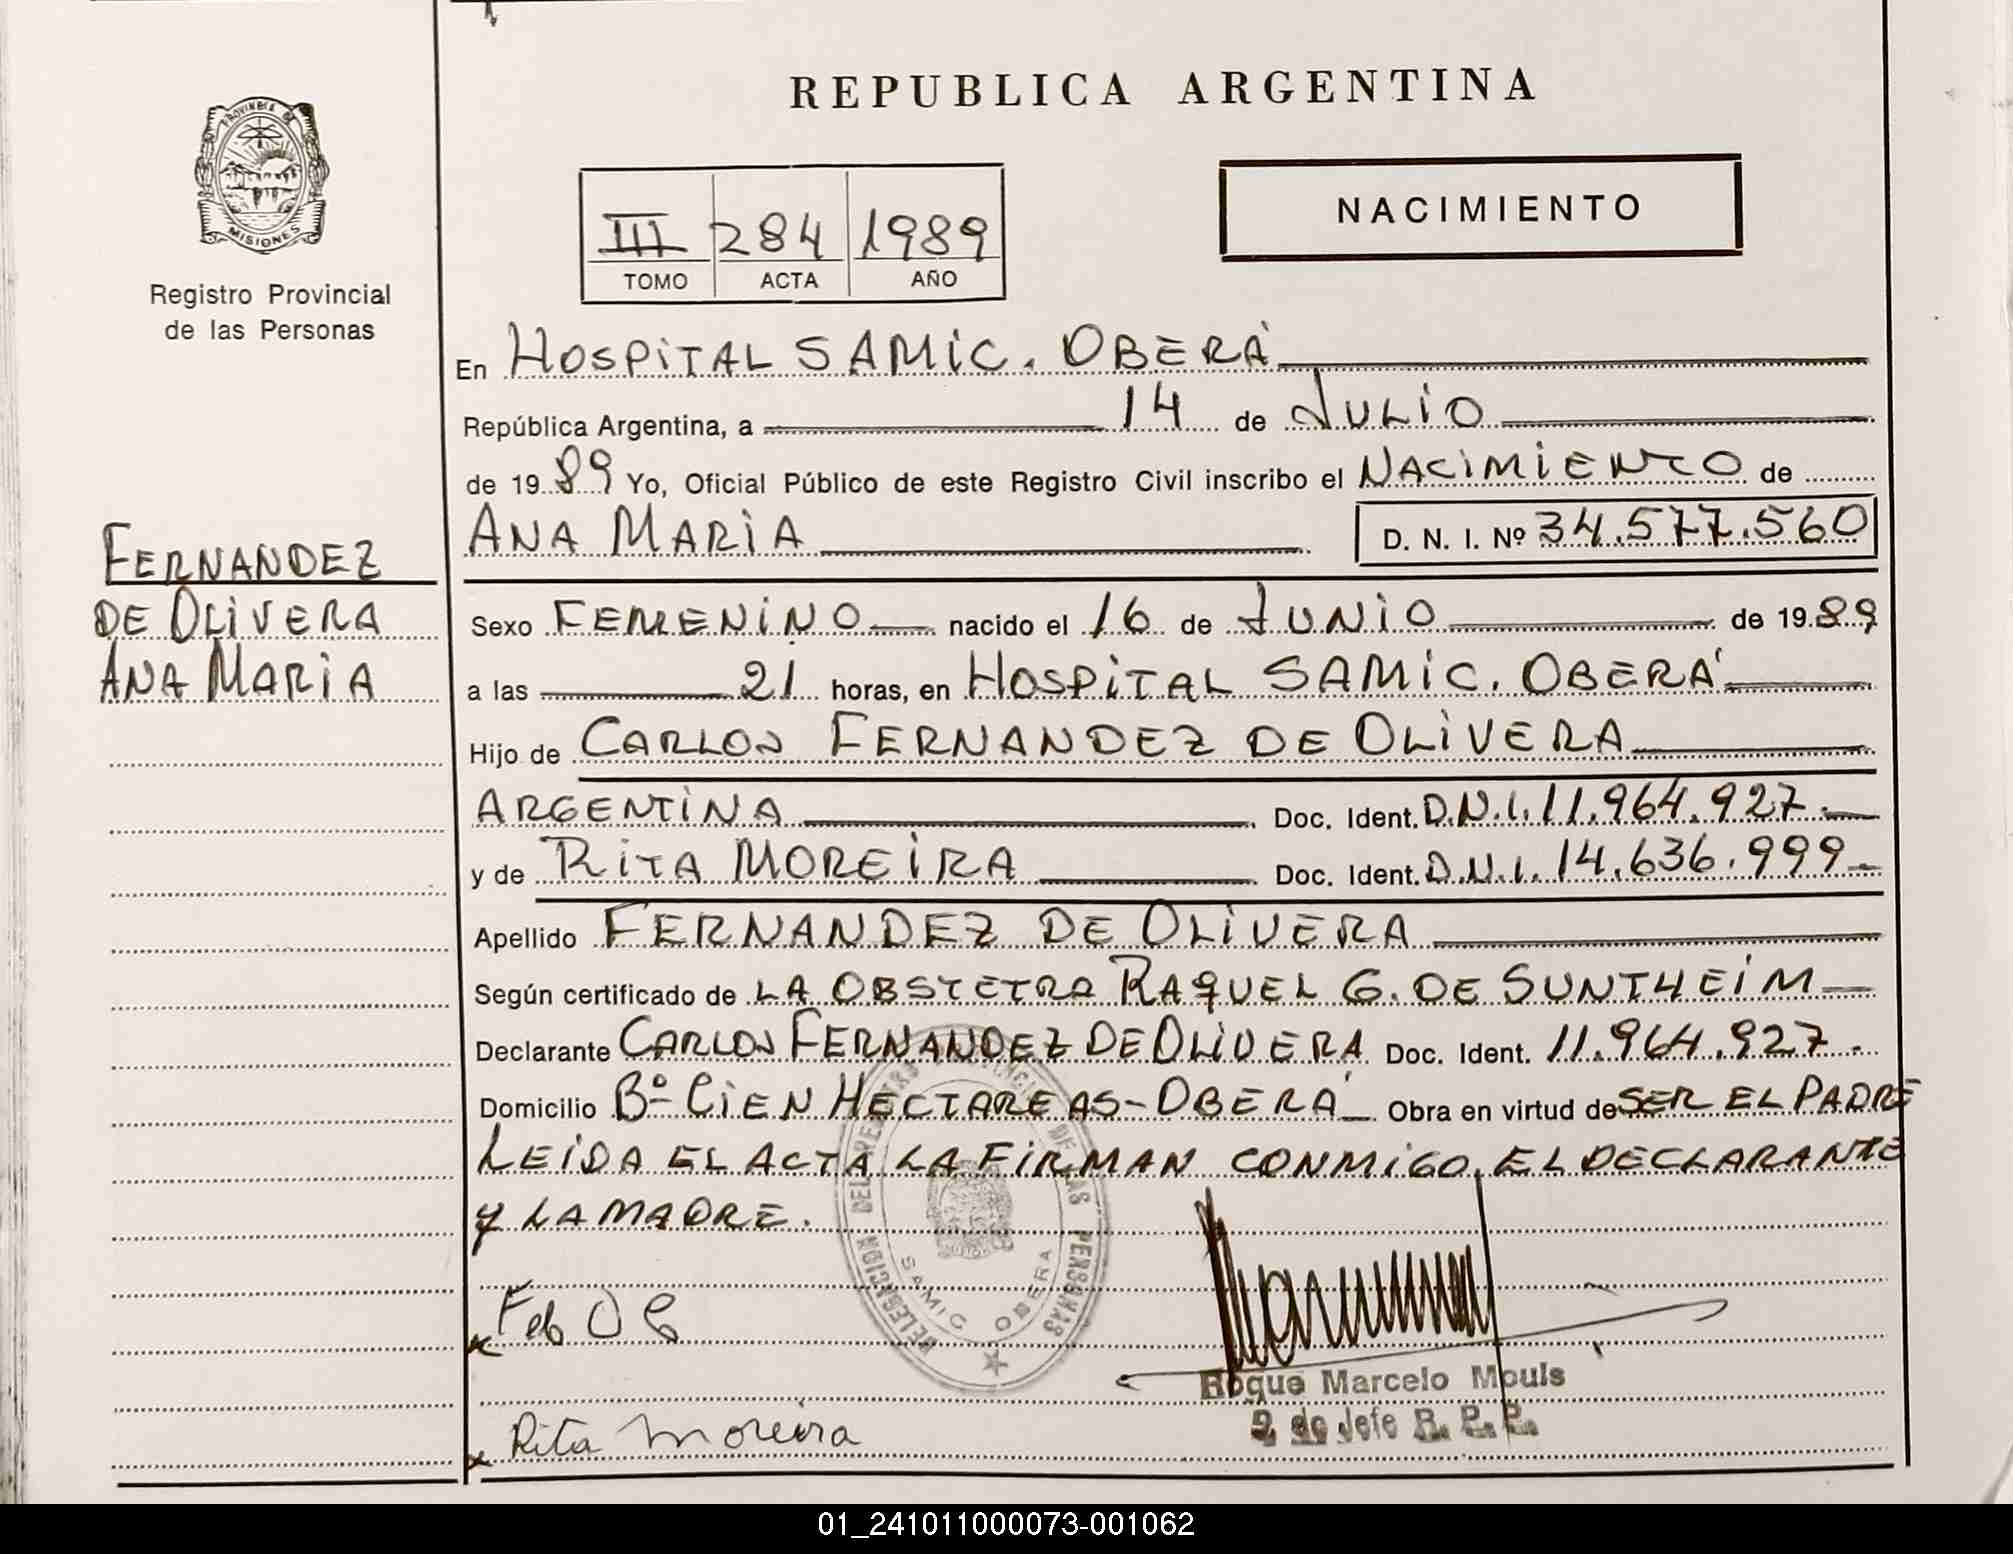 REPUBLICA ARGENTINA
PROVINCIA DE MISIONES
Registro Provincial
de las Personas
NACIMIENTO
III 284 1989
TOMO ACTA AÑO
En HOSPITAL SAMIC. OBERÁ
República Argentina, a 14 de JULIO
de 1989 Yo, Oficial Público de este Registro Civil inscribo el NACIMIENTO de
ANA MARIA D. N. I. Nº 34.577.560
FERNANDEZ
DE OLIVERA
ANA MARIA
Sexo FEMENINO nacido el 16 de JUNIO de 1989
a las 21 horas, en HOSPITAL SAMIC. OBERÁ
Hijo de CARLOS FERNANDEZ DE OLIVERA
ARGENTINA Doc. Ident. D.N.I. 11.964.927.-
y de RITA MOREIRA Doc. Ident. D.N.I. 14.636.999-
Apellido FERNANDEZ DE OLIVERA
Según certificado de LA OBSTETRA RAQUEL G. DE SUNTHEIM
Declarante CARLOS FERNANDEZ DE OLIVERA Doc. Ident. 11.964.927.-
Domicilio Bº CIEN HECTAREAS - OBERÁ Obra en virtud de SER EL PADRE
LEIDA EL ACTA LA FIRMAN CONMIGO, EL DECLARANTE
Y LA MADRE.
DELEGACION DEL REGISTRO PROVINCIAL DE LAS PERSONAS
SAMIC OBERA
Rita Moreira
Roque Marcelo Mouls
2 do Jefe R. P. P.
01_241011000073-001062